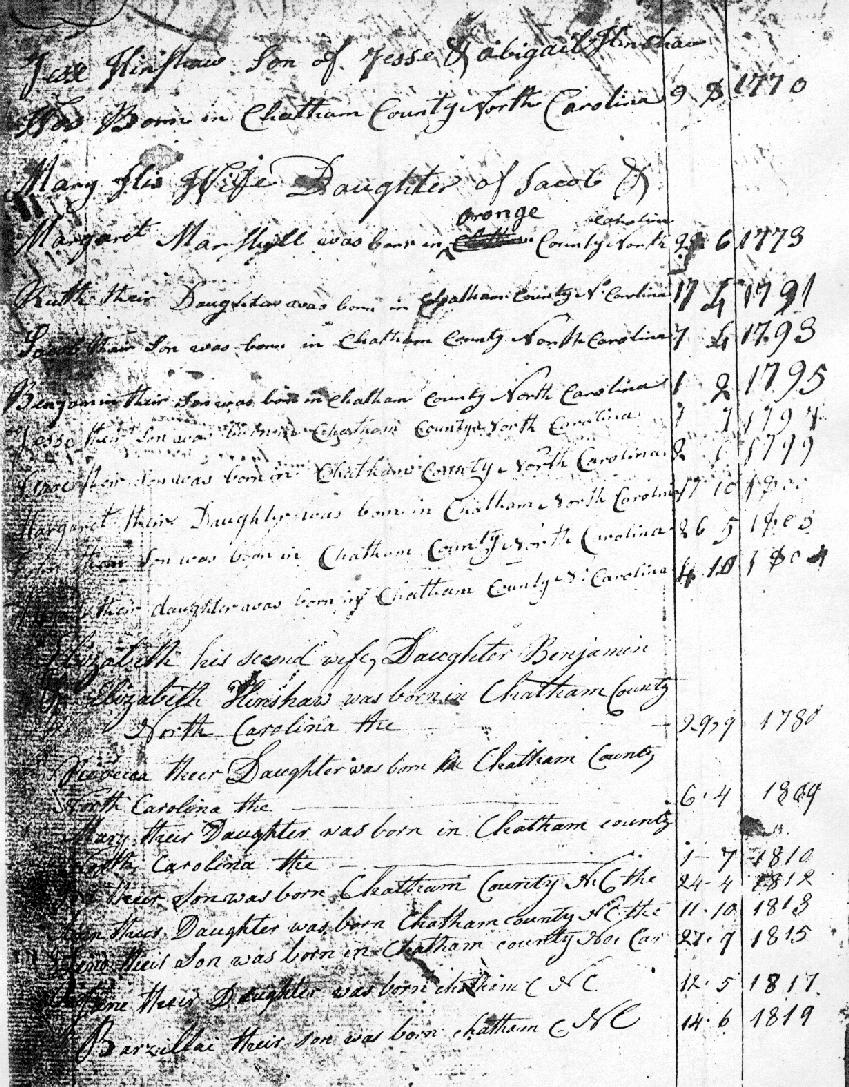 Jesse Hinshaw Son of Jesse & abigail Hinshaw
Was Born in Chatham County North Carolina 9 8 1770
Mary His Wife Daughter of Jacob &
orange carolina
Margaret Marshill was born in County North 6 1773
Ruth their Daughter was born in Chatham County No Carolina 17 4 1791
Jacob their Son was born in Chatham County North Carolina 7 4 1793
Benjamin their Son was born in Chatham County North Carolina 1 2 1795
Jesse their Son was born in Chatham County North Carolina 7 7 1797
their Son was born in Chatham County North Carolina 1 1799
Margaret their Daughter was born in Chatham North Carolina 17 10 1800
their Son was born in Chatham County North Carolina 26 5 1803
their daughter was born in Chatham County N. Carolina 4 10 1804
Elizabeth his second wife, Daughter Benjamin
& Elizabeth Hinshaw was born in Chatham County
North Carolina the 29 9 1780
Rebecca their Daughter was born in Chatham County
North Carolina the 6 4 1809
Mary their Daughter was born in Chatham county
North Carolina the 1 7 1810
their Son was born Chatham County NC the 24 4 1812
their Daughter was born Chatham county NC the 11 10 1813
their Son was born in Chatham county No Car 27 9 1815
their Daughter was born chatham C NC 12 5 1817
Barzillai their son was born chatham C NC 14 6 1819